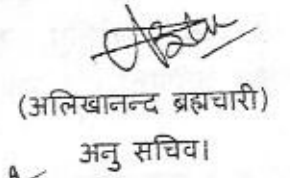 (अलिखानन्द ब्रह्मचारी)
अनु सचिव।